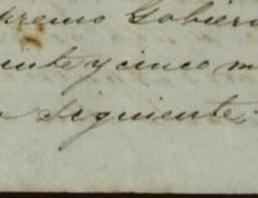 premo Gobier
ente y cinco m
siguiente.